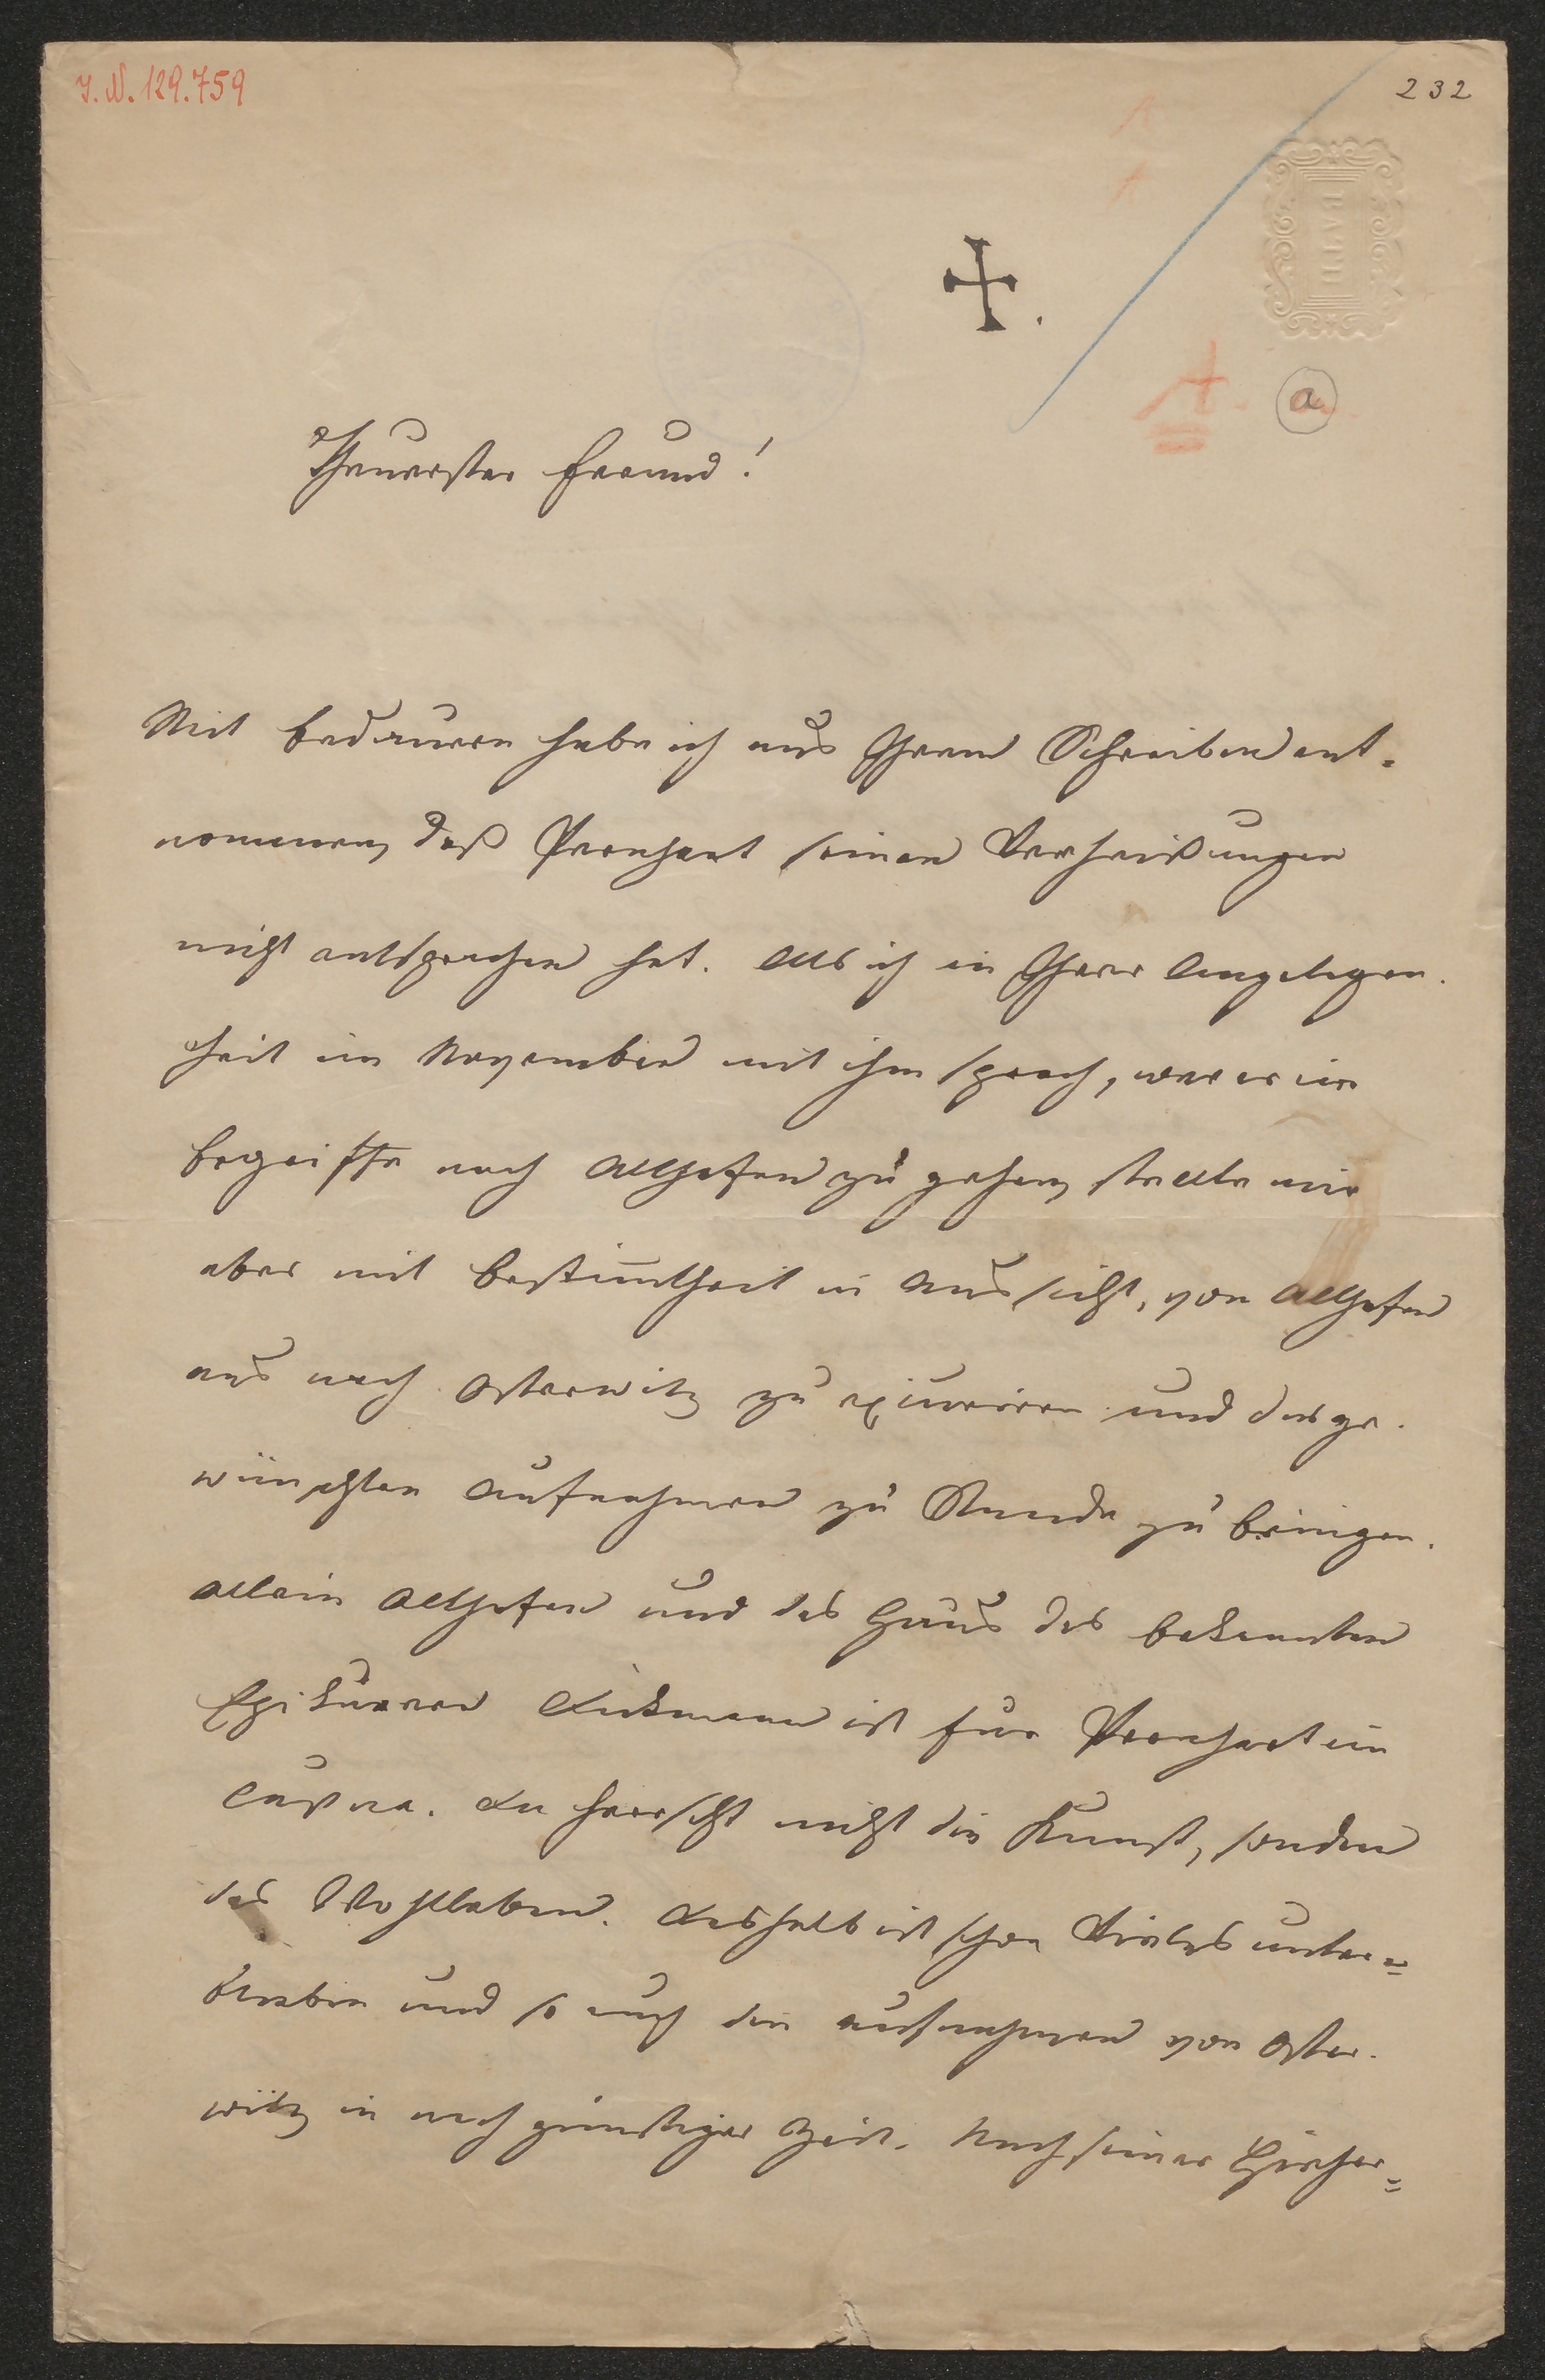 I. N. 129.759
232
BATH
a
Theuerster Freund!
Mit Bedauern habe ich aus Ihrem Schreiben ent-
nommen, daß Pernhart seinen Verheißungen
nicht entsprochen hat. Als ich in Ihrer Angelegen-
heit im November mit ihm sprach, war er im
Begriffe nach Althofen zu gehen, stellte mir
aber mit Bestimtheit in Aussicht, von Althofen
aus nach Osterwitz zu excurriren und das ge-
wünschten Aufnahmen zu Stande zu bringen.
Allein Althofen und das Haus des bekannten
Epikuräers ist für Pernhart ein
Capua. Da herrscht nicht die Kunst, sondern
das Wohlleben. Deshalb ist schon Vieles unter=
blieben und so auch die Aufnahmen von Oster-
witz in noch günstiger Zeit. Nach seiner Hieher=